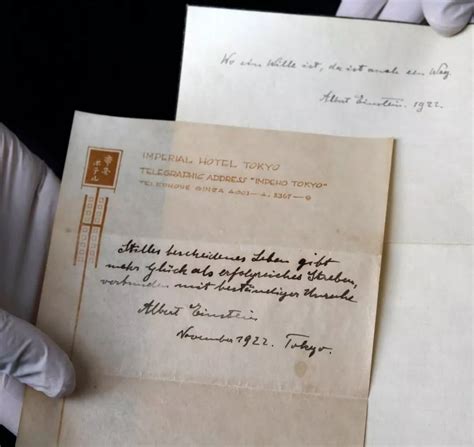 Wo ein Wille ist, da ist auch ein Weg.
Albert Einstein. 1922.
IMPERIAL HOTEL TOKYO
TELEGRAPHIC ADDRESS "IMPEHO TOKYO"
TELEPHONE GINZA
Stilles bescheidenes Leben gibt
mehr Glück als erfolgreiches Streben,
verbunden mit beständiger Unruhe.
Albert Einstein
November 1922. Tokyo.